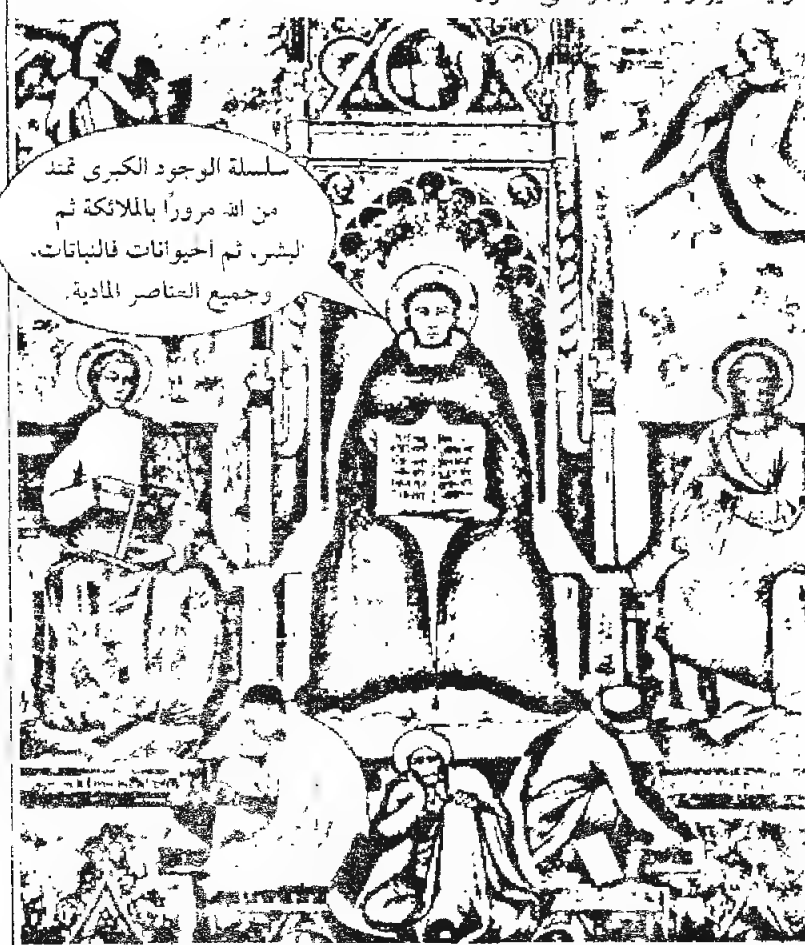 سلسلة الوجود الكبرى تمتد
من الله مرورًا بالملائكة ثم
لبشر، ثم الحيوانات فالنباتات.
وجميع العناصر المادية.